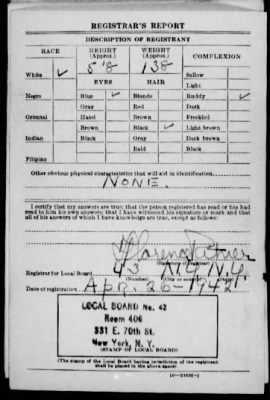 REGISTRAR'S REPORT
DESCRIPTION OF REGISTRANT
RACE HEIGHT (Approx.) WEIGHT (Approx.) COMPLEXION
White ✓ 5'8 138 Sallow
EYES HAIR Light
Negro Blue ✓ Blonde Ruddy ✓
Gray Red Dark
Oriental Hazel Brown Freckled
Brown Black ✓ Light brown
Indian Black Gray Dark brown
Bald Black
Filipino
Other obvious physical characteristics that will aid in identification
NONE.
I certify that my answers are true; that the person registered has read or has had
read to him his own answers; that I have witnessed his signature or mark and that
all of his answers of which I have knowledge are true, except as follows:
Registrar for Local Board 43 N.Y. N.Y.
(Number) (City or county)
Date of registration Apr. 26-1942
LOCAL BOARD No. 43
Room 406
331 E. 70th St.
New York, N. Y.
(STAMP OF LOCAL BOARD)
(The stamp of the Local Board having jurisdiction of the registrant
shall be placed in the above space)